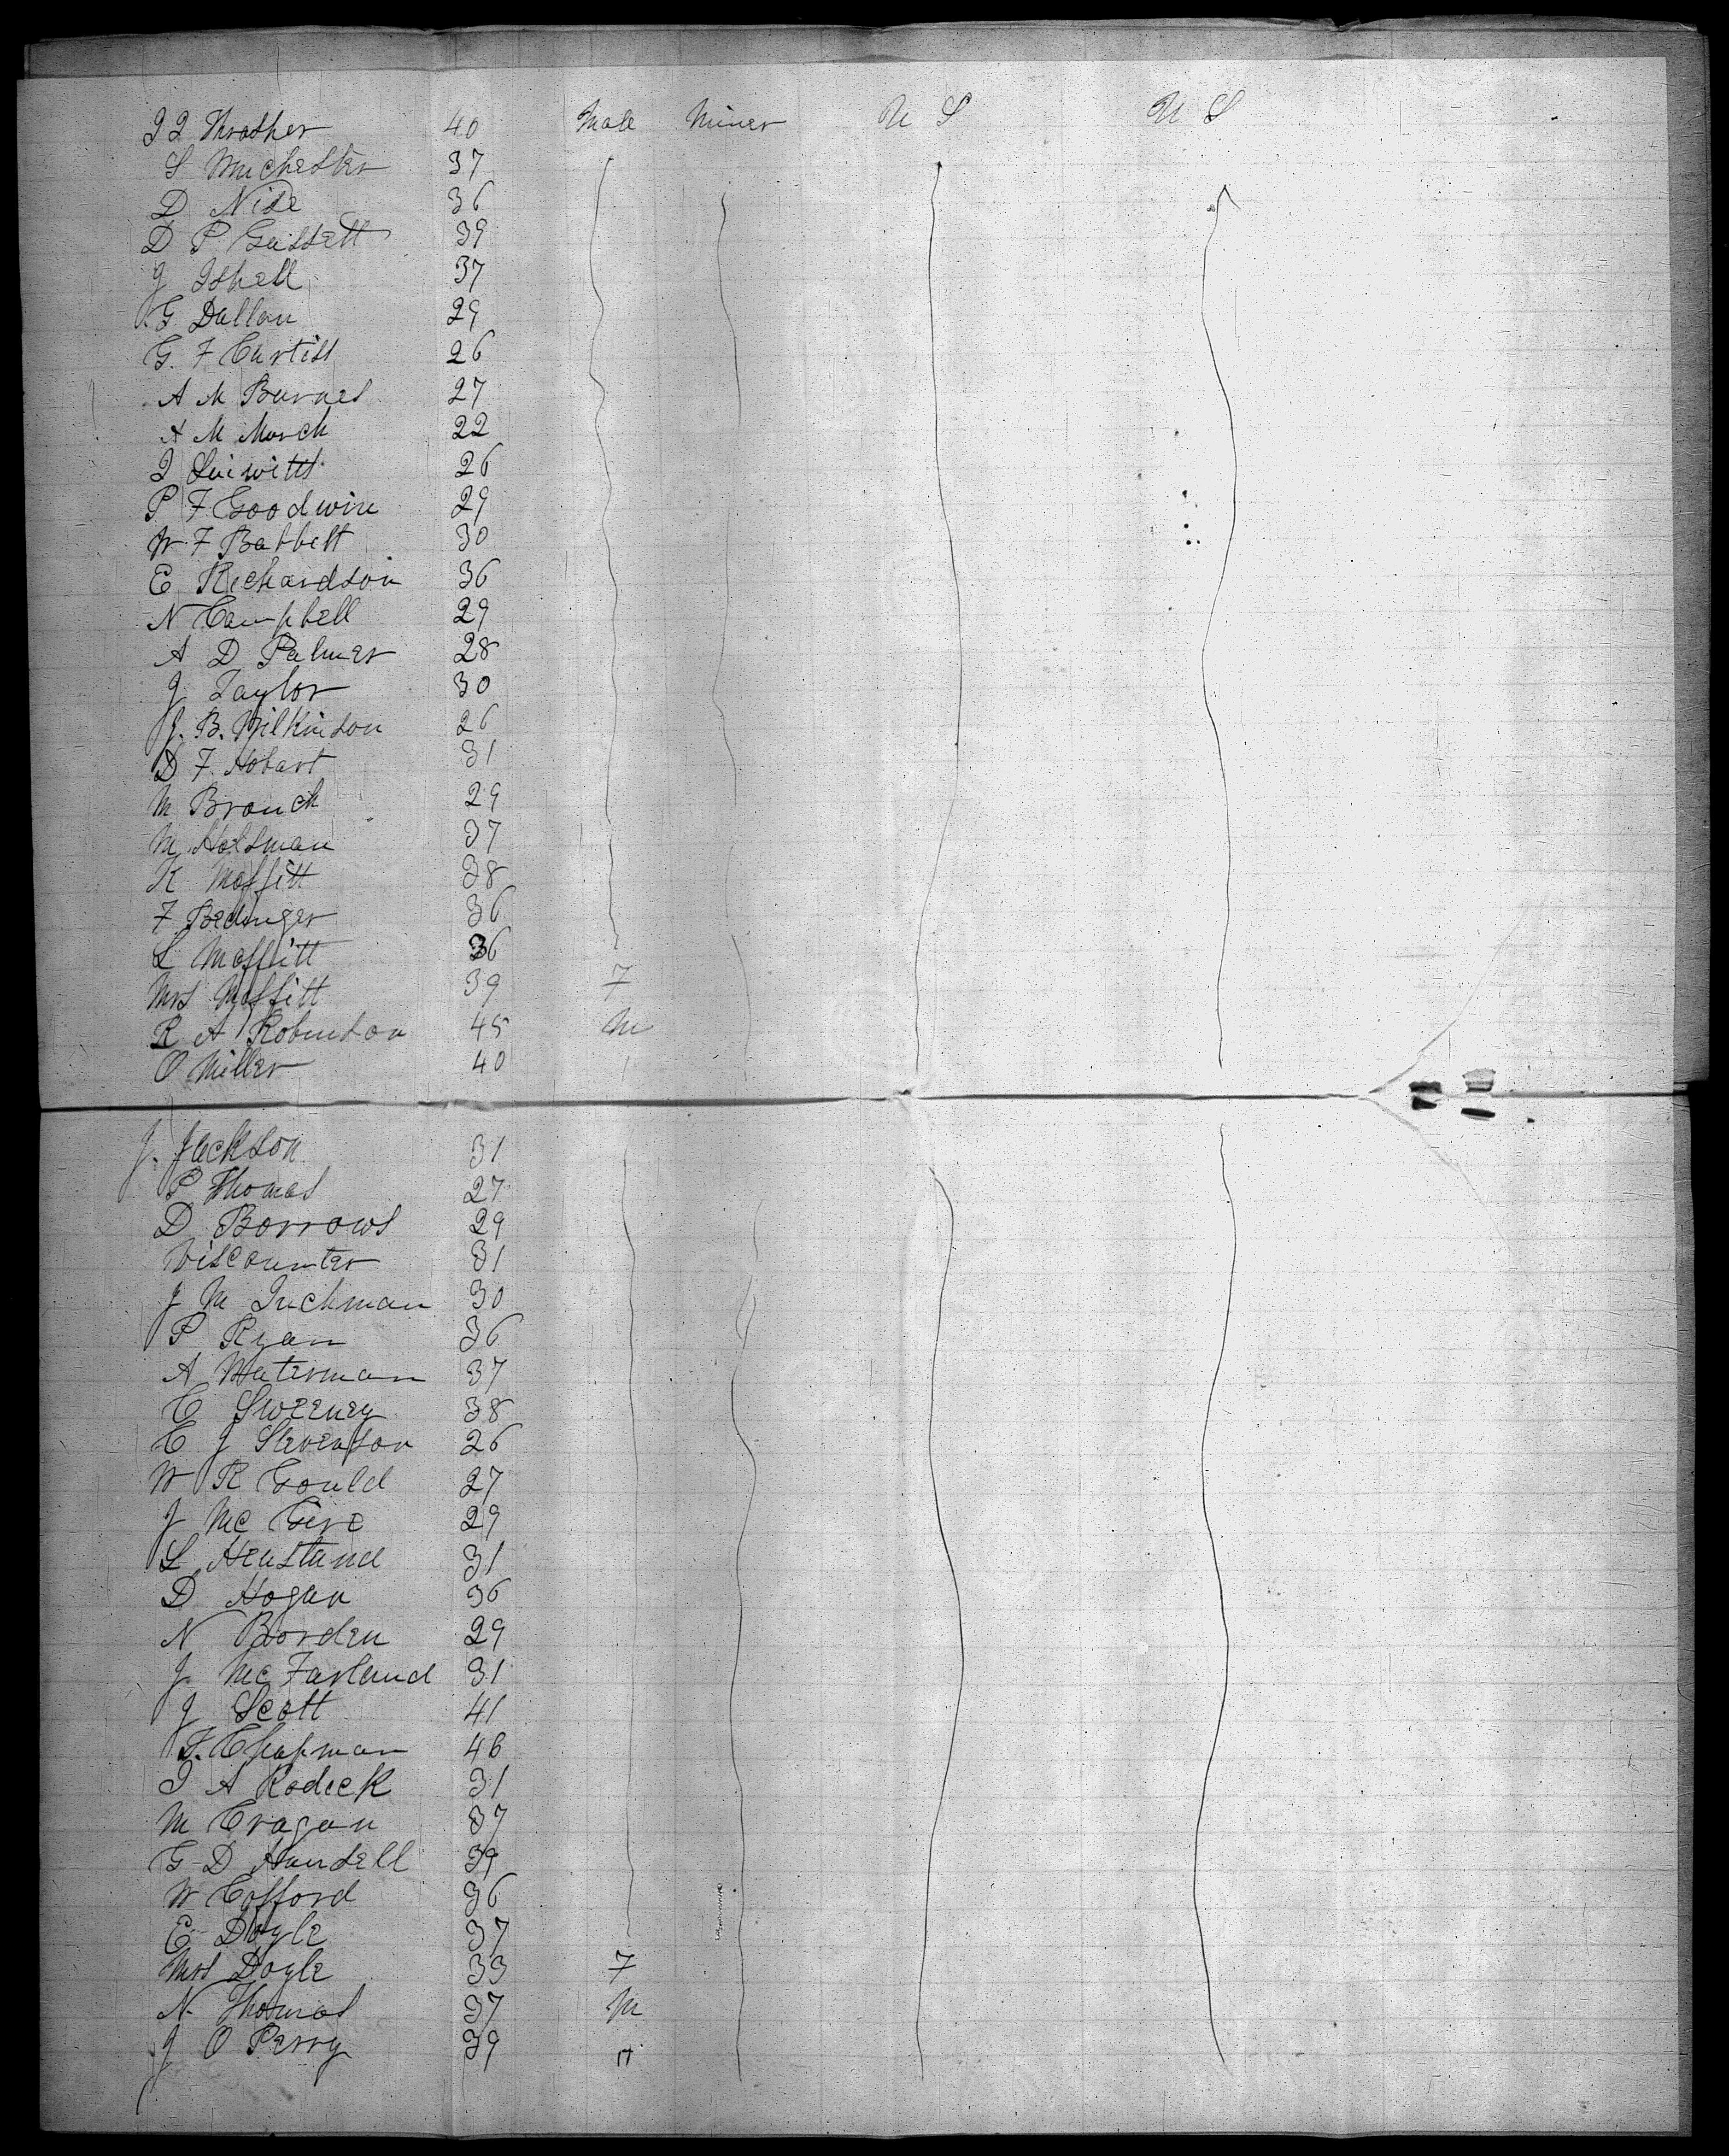 Thrasher 40 Male Miner U S U S
S Muchester 37
D Nise 36
D P Gussett 39
J Isbell 37
G Dallan 29
G. F Curtiss 26
A M Barnes 27
A M March 22
26
P F Goodwin 29
W F Babbett 30
E Richardson 36
N Campbell 29
A D Palmer 28
J Taylor 30
J. B. Wilkinson 26
D F. Hobart 31
M Branch 29
M Holsman 37
K Moffitt 38
F Bedinger 36
L Moffitt 36
Mrs Moffitt 39 F
R A Robinson 45 M
O Miller 40
J. Jackson 31
P Thomas 27
D Borrows 29
Viscounter 31
J M Tuchman 30
P Ryan 36
A Waterman 37
C Sweeney 38
C J Stevenson 26
W R Gould 27
J Mc Gire 29
L Heustand 31
D Hogan 36
N Borden 29
J Mc Farland 31
J Scott 41
F. Chapman 46
A Rodick 31
M Cragan 37
G D Hansell 39
W Cofford 36
E Doyle 37
Mrs Doyle 33 F
N. Thomas 37 M
J O Perry 39